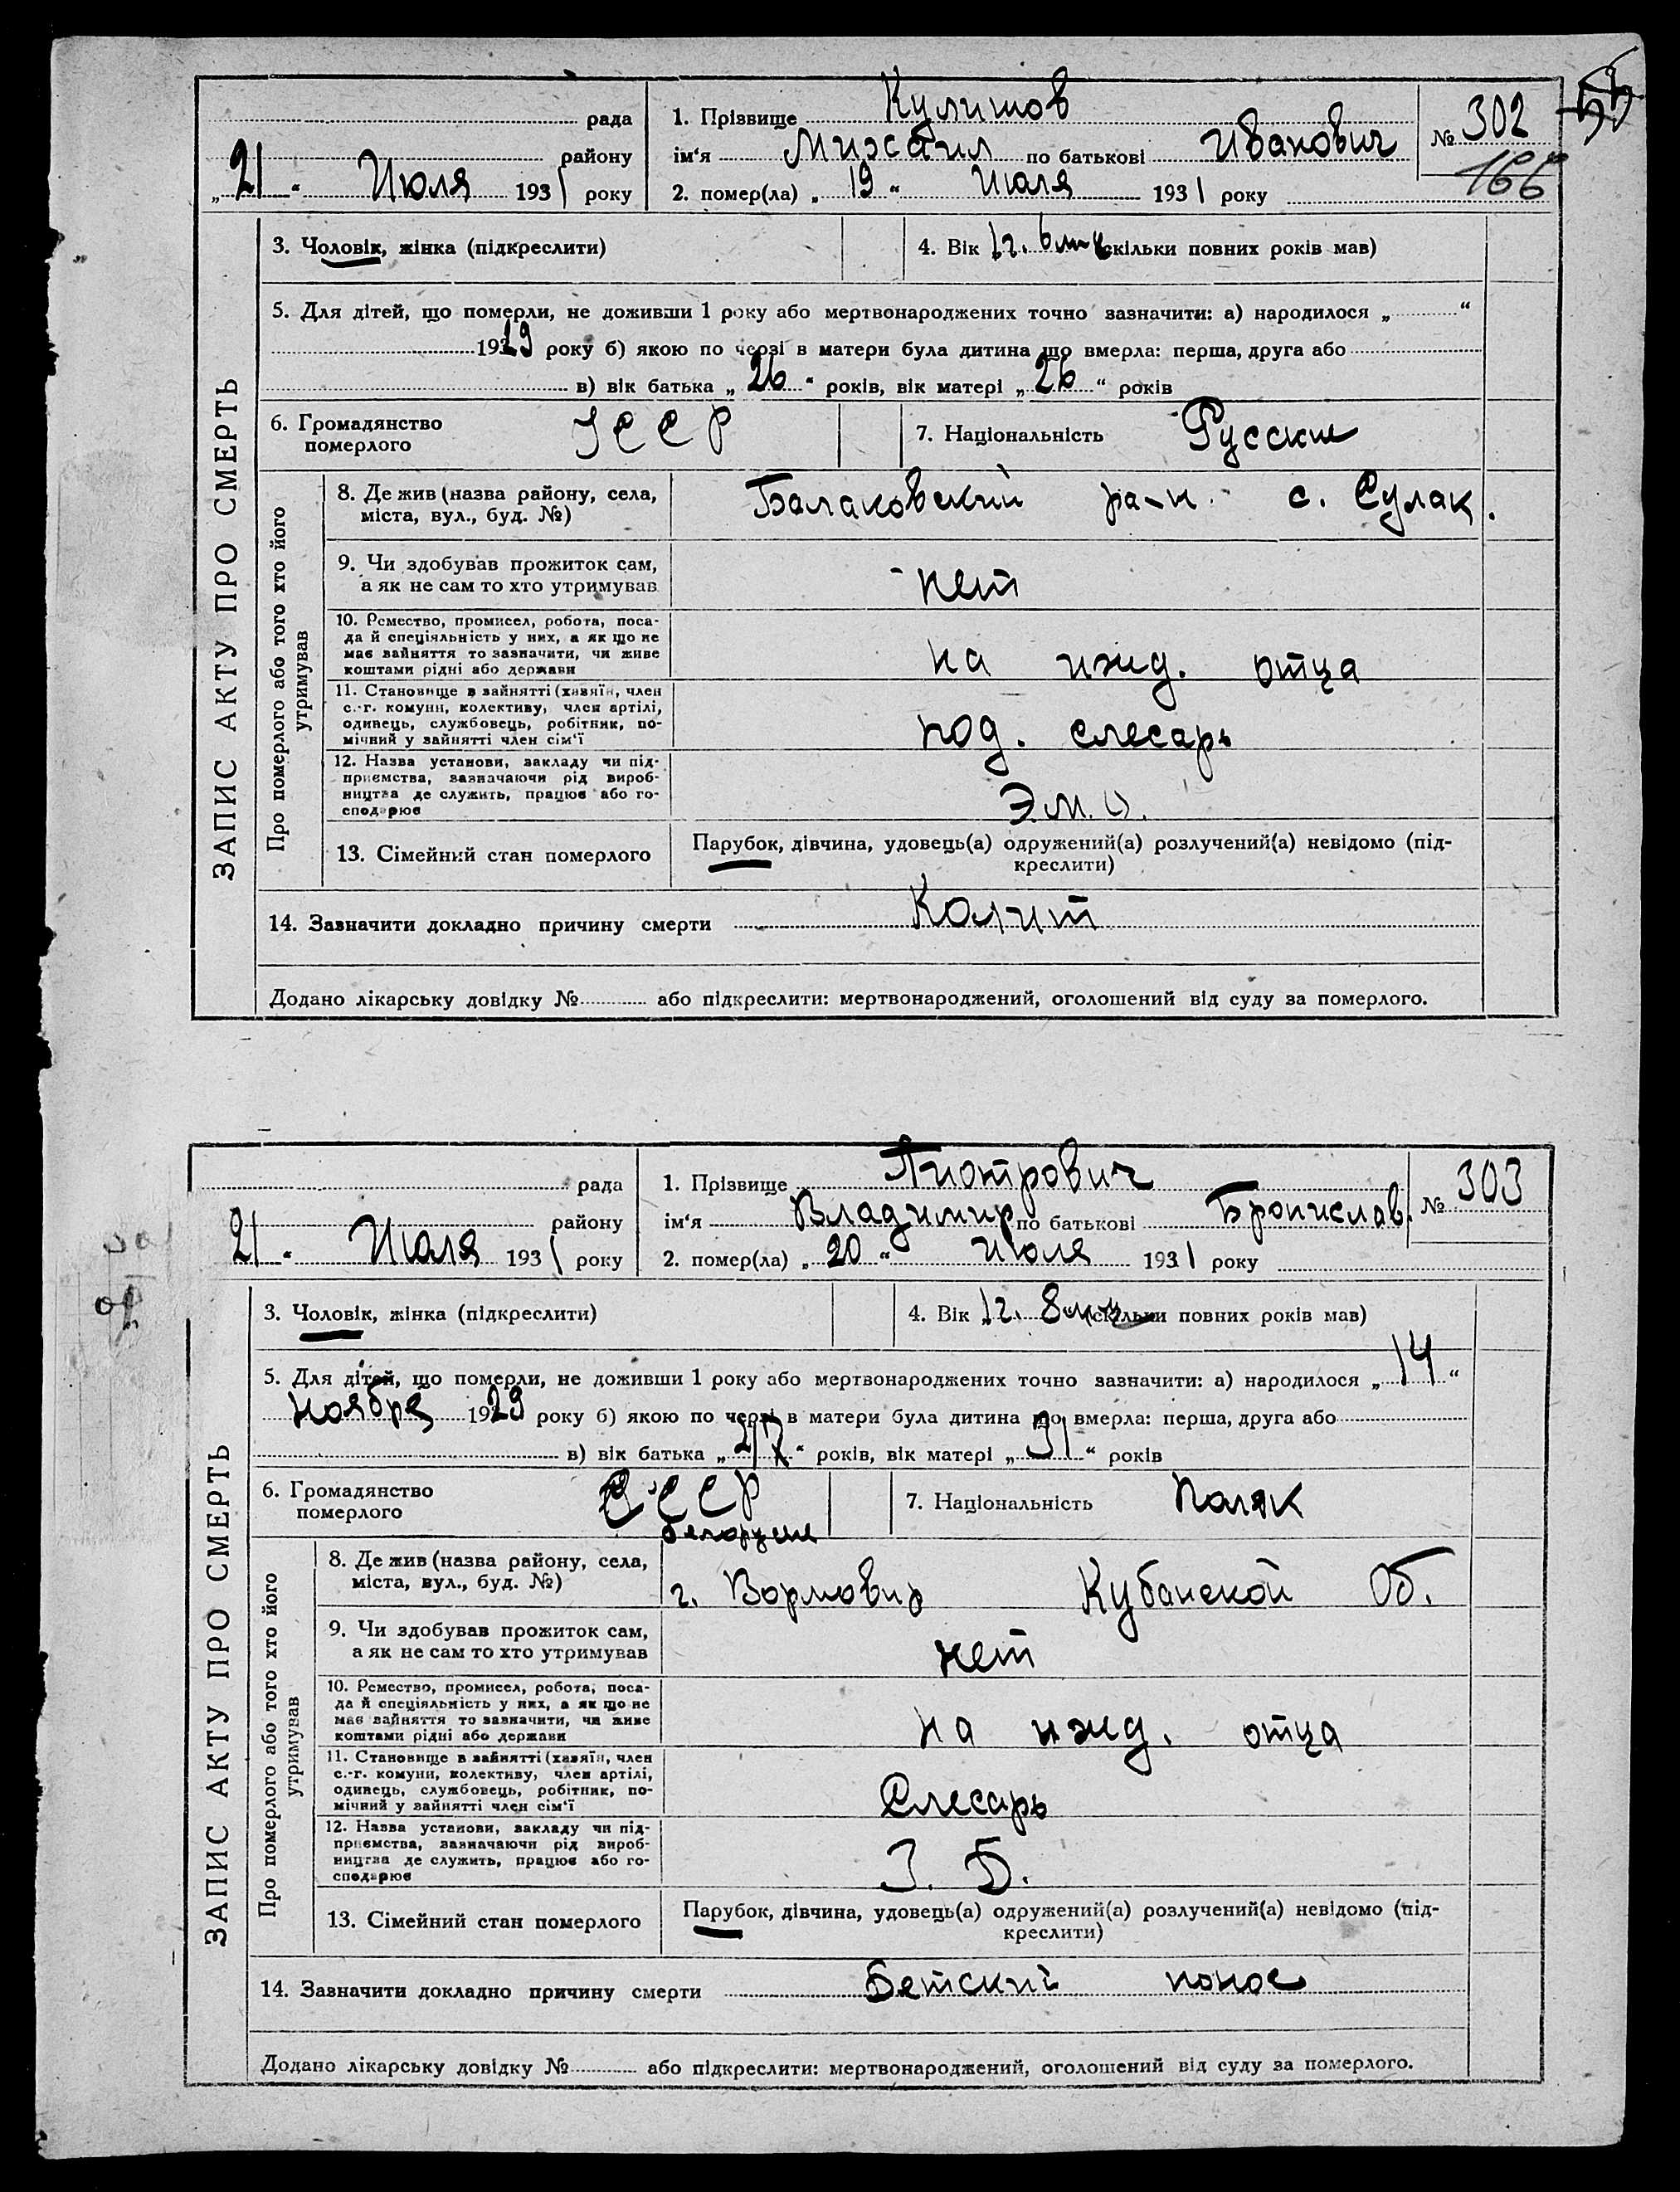 рада
району
„ 21 “ Июля 1931 року
1. Прізвище Кулишов
ім‘я Михаил по батькові Иванович
2. помер(ла) „ 19 “ Июля 1931 року
№ 302
166
ЗАПИС АКТУ ПРО СМЕРТЬ
3. Чоловік, жінка (підкреслити)
4. Вік 1 г. 6 (скільки повних років мав)
5. Для дітей, що померли, не доживши 1 року або мертвонароджених точно зазначити: а) народилося „ “
1929 року б) якою по черзі в матери була дитина що вмерла: перша, друга або
в) вік батька „ 26 “ років, вік матері „ 26 “ років
6. Громадянство
померлого
УССР
7. Національність Русские
Про померлого або того хто його
утримував
8. Де жив (назва району, села,
міста, вул., буд. №)
Балаковский ра-н. с. Сулак.
9. Чи здобував прожиток сам,
а як не сам то хто утримував
- нет
10. Ремество, промисел, робота, поса-
да й спеціяльність у них, а як що не
має зайняття то зазначити, чи живе
коштами рідні або держави
на ижд. отца
11. Становище в зайнятті (хазяїн, член
с.-г. комуни, колективу, член артілі,
одинець, службовець, робітник, по-
мічний у зайнятті член сім‘ї
под. слесарь
12. Назва установи, закладу чи під-
приємства, зазначаючи рід вироб-
ництва де служить, працює або го-
сподарює
Э.М.О.
13. Сімейний стан померлого
Парубок, дівчина, удовець(а) одружений(а) розлучений(а) невідомо (під-
креслити)
14. Зазначити докладно причину смерти Колит
Додано лікарську довідку № або підкреслити: мертвонароджений, оголошений від суду за померлого.
рада
району
21 “ Июля 1931 року
1. Прізвище Пиотрович
ім‘я Владимир по батькові Бронислав.
2. помер(ла) „ 20 “ июля 1931 року
№ 303
ЗАПИС АКТУ ПРО СМЕРТЬ
3. Чоловік, жінка (підкреслити)
4. Вік „ 1 г. 8 (скільки повних років мав)
5. Для дітей, що померли, не доживши 1 року або мертвонароджених точно зазначити: а) народилося „ 14 “
ноября 1929 року б) якою по черзі в матери була дитина що вмерла: перша, друга або
в) вік батька „ “ років, вік матері „ 31 “ років
6. Громадянство
померлого
СССР
7. Національність поляк
Про померлого або того хто його
утримував
8. Де жив (назва району, села,
міста, вул., буд. №)
г. Вормовир Кубанской Об.
9. Чи здобував прожиток сам,
а як не сам то хто утримував
нет
10. Ремество, промисел, робота, поса-
да й спеціяльність у них, а як що не
має зайняття то зазначити, чи живе
коштами рідні або держави
на ижд. отца
11. Становище в зайнятті (хазяїн, член
с.-г. комуни, колективу, член артілі,
одинець, службовець, робітник, по-
мічний у зайнятті член сім‘ї
Слесарь
12. Назва установи, закладу чи під-
приємства, зазначаючи рід вироб-
ництва де служить, працює або го-
сподарює
З. Б.
13. Сімейний стан померлого
Парубок, дівчина, удовець(а) одружений(а) розлучений(а) невідомо (під-
креслити)
14. Зазначити докладно причину смерти Детский понос
Додано лікарську довідку № або підкреслити: мертвонароджений, оголошений від суду за померлого.